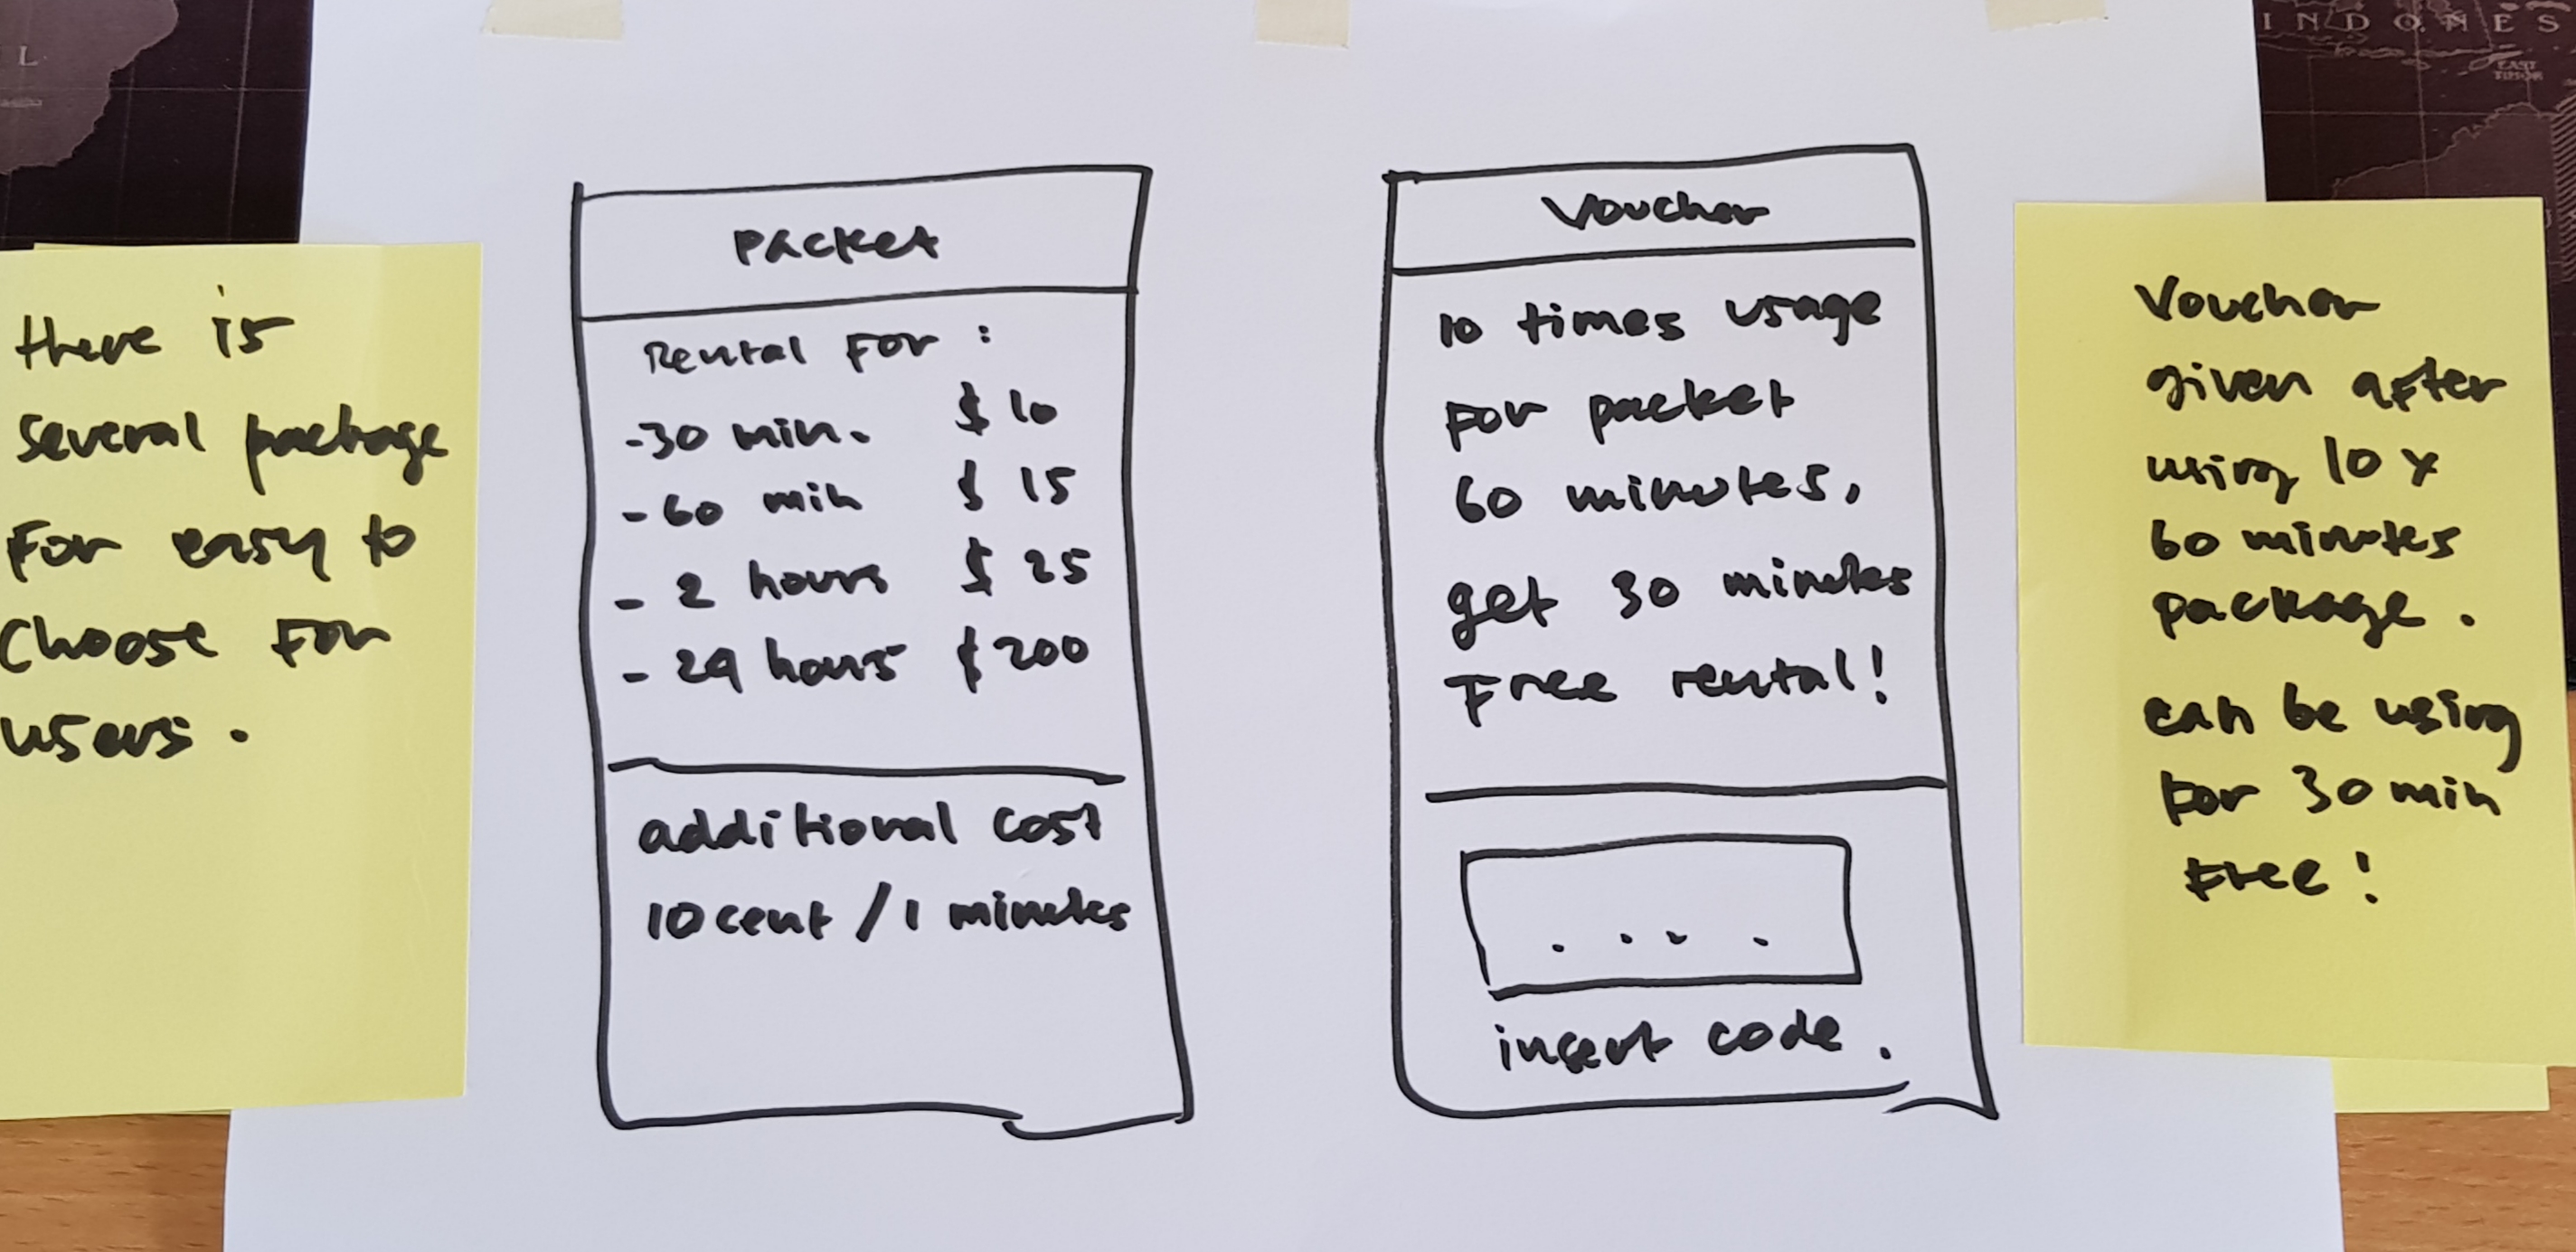 L
INDONES
EAST
TIMOR
there is
several package
For easy to
choose For
users.
Packet
Rental For :
-30 min. $ 10
- 60 min $ 15
- 2 hours $ 25
- 24 hours $ 200
additional cost
10 cent / 1 minutes
Voucher
10 times usage
For packet
60 minutes,
get 30 minutes
Free rental!
. . . .
insert code.
Voucher
given after
using 10 x
60 minutes
package.
can be using
For 30 min
Free!